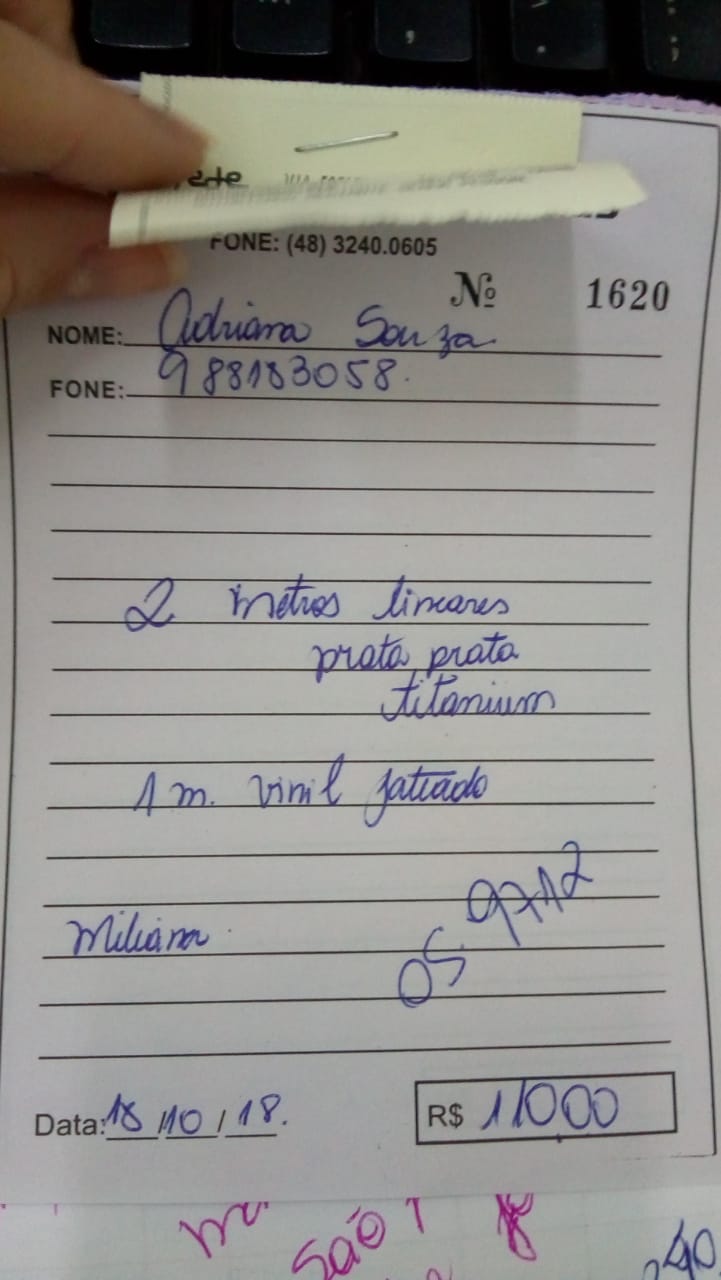 FONE: (48) 3240.0605
Nº 1620
NOME: Adriana Souza
FONE: 988183058.
2 metros lineares
prata prata
titanium
1 m. vinil jateado
OS 9712
Miliana
Data: 18/10/18.
R$ 11000
São